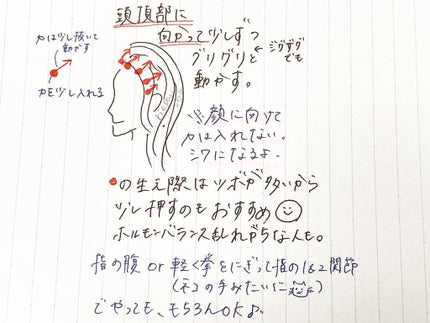 頭頂部に
向かって少しずつ
グリグリと
動かす。
←ジグザグ
でも
力は少し抜いて
動かす
力を少し入れる
※顔に向けて
力は入れない。
シワになるよ。
●の生え際はツボが多いから
少し押すのもおすすめ
ホルモンバランス乱れがちな人も。
指の腹 or 軽く拳をにぎって指の1&2関節
(ネコの手みたいに)
でやっても、もちろんOK♪。